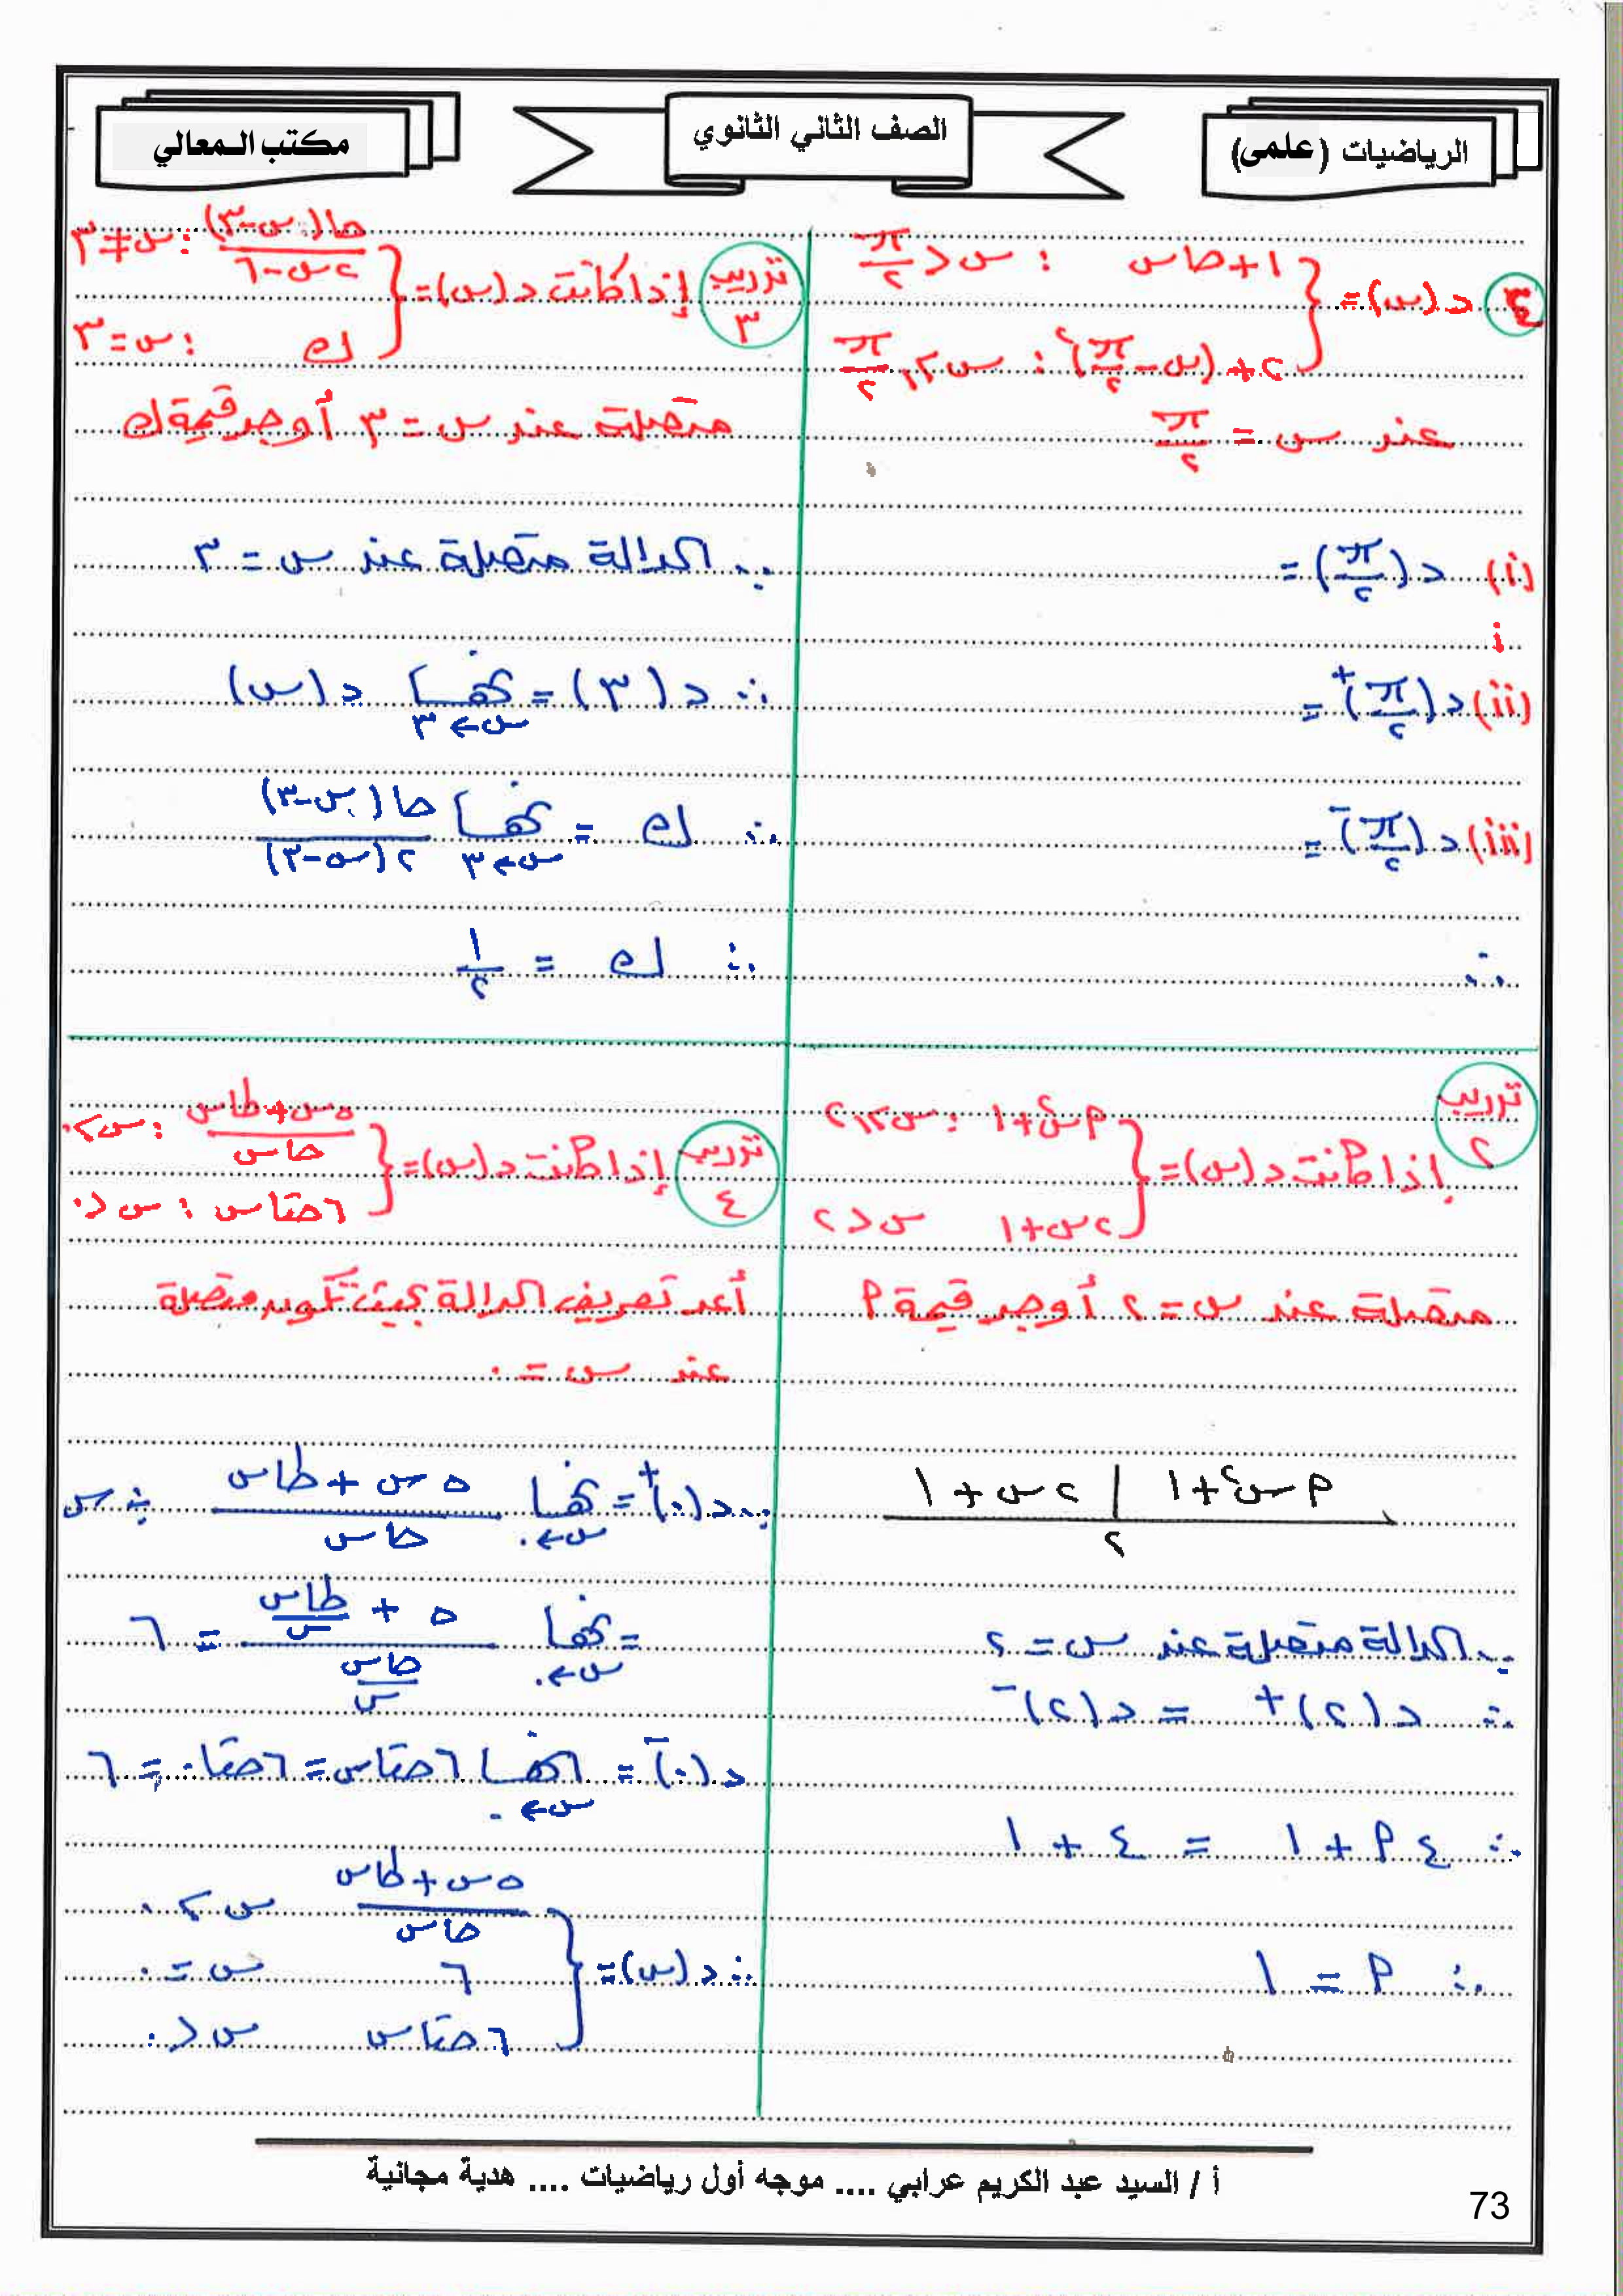 الرياضيات (علمى)
الصف الثاني الثانوي
مكتب المعالي
(٣) د(س) = { ١+حاس : س < π/٢
٢+(س-π/٢)² : س ≥ π/٢
عند س = π/٢
(i) د(π/٢) =
(ii) د(π/٢)⁺ =
(iii) د(π/٢)⁻ =
∴
تدريب ٣
إذا كانت د(س) = { حا(س-٣)/(٢س-٦) : س≠٣
ك : س=٣
متصلة عند س=٣ أوجد قيمة ك
∵ الدالة متصلة عند س=٣
∴ د(٣) = نهـــا س←٣ د(س)
∴ ك = نهـــا س←٣ حا(س-٣)/٢(س-٣)
∴ ك = ١/٢
تدريب ٢
إذا كانت د(س) = { م س²+١ : س≥٢
٢س+١ س<٢
متصلة عند س=٢ أوجد قيمة م
م س²+١ | ٢س+١
٢
∵ الدالة متصلة عند س=٢
∴ د(٢)⁺ = د(٢)⁻
∴ ٤م+١ = ٤+١
∴ م = ١
تدريب ٤
إذا كانت د(س) = { (٥س+طاس)/حاس : س>٠
٦حتاس : س<٠
أعد تعريف الدالة بحيث تكون متصلة
عند س=٠
∵ د(٠)⁺ = نهـــا س←٠ (٥س+طاس)/حاس ÷ س
= نهـــا س←٠ (٥+طاس/س)/(حاس/س) = ٦
د(٠)⁻ = نهـــا س←٠ ٦حتاس = ٦حتا٠ = ٦
∴ د(س) = { (٥س+طاس)/حاس س>٠
٦ س=٠
٦حتاس س<٠
أ / السيد عبد الكريم عرابي .... موجه أول رياضيات .... هدية مجانية
73